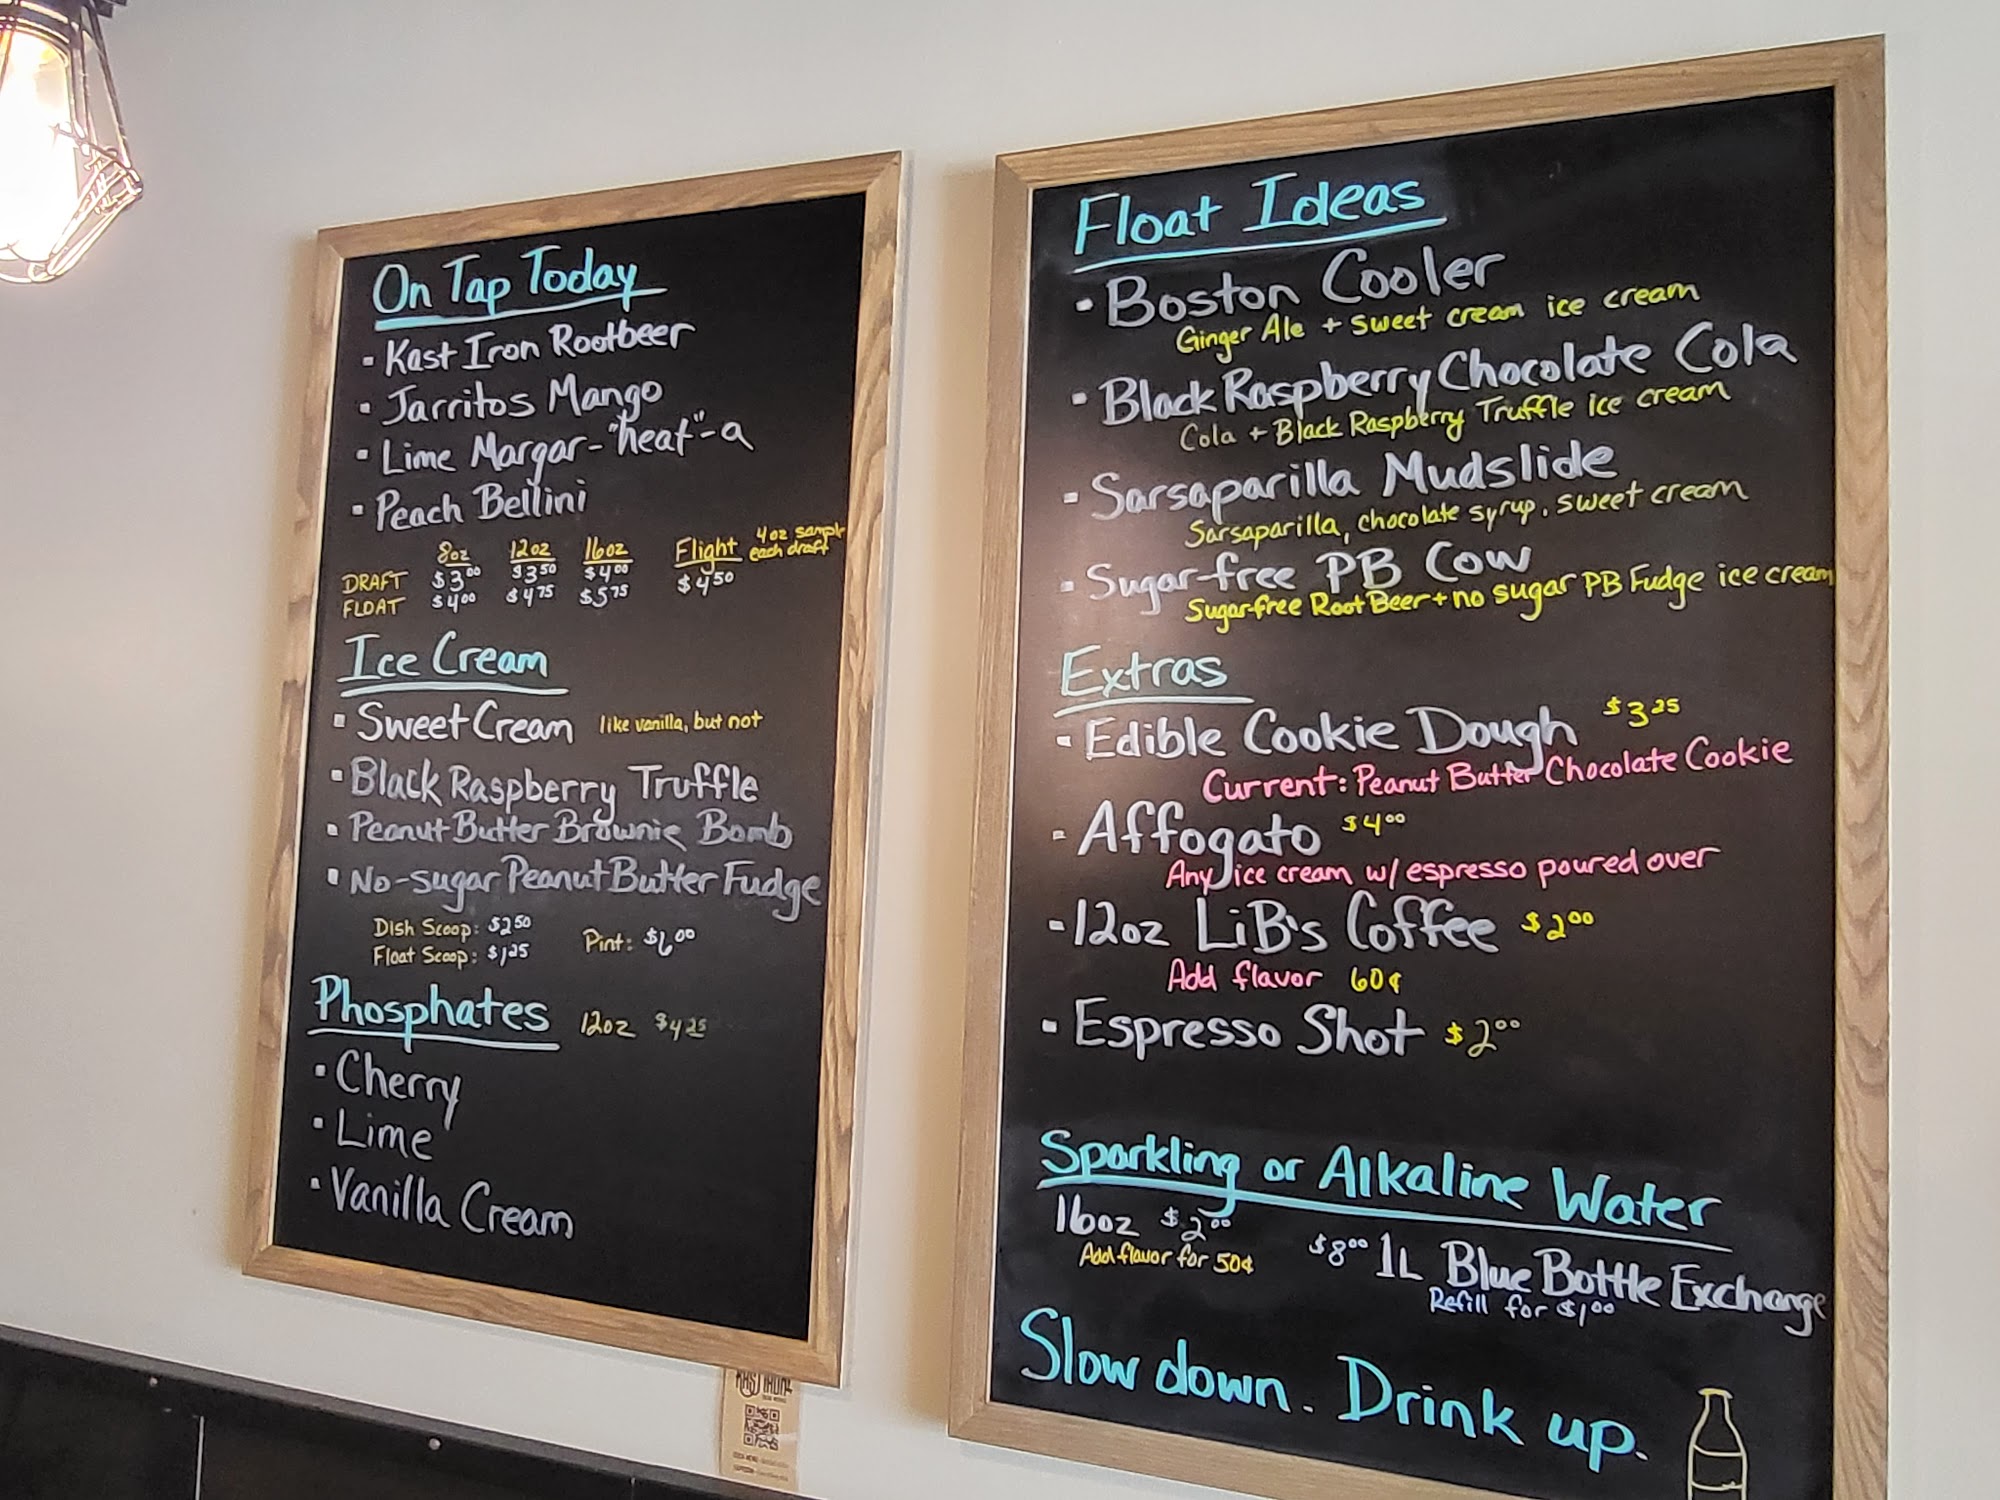 On Tap Today
▪ Kast Iron Rootbeer
▪ Jarritos Mango
▪ Lime Margar-"heat"-a
▪ Peach Bellini
8oz 12oz 16oz Flight 4oz sample each draft
DRAFT $3.00 $3.50 $4.00 $4.50
FLOAT $4.00 $4.75 $5.75
Ice Cream
▪ Sweet Cream like vanilla, but not
▪ Black Raspberry Truffle
▪ Peanut Butter Brownie Bomb
▪ No-sugar Peanut Butter Fudge
Dish Scoop: $2.50
Float Scoop: $1.25
Pint: $6.00
Phosphates 12oz $4.25
▪ Cherry
▪ Lime
▪ Vanilla Cream
Float Ideas
▪ Boston Cooler
Ginger Ale + sweet cream ice cream
▪ Black Raspberry Chocolate Cola
Cola + Black Raspberry Truffle ice cream
▪ Sarsaparilla Mudslide
Sarsaparilla, chocolate syrup, sweet cream
▪ Sugar-free PB Cow
Sugar-free Root Beer + no sugar PB Fudge ice cream
Extras
▪ Edible Cookie Dough $3.25
Current: Peanut Butter Chocolate Cookie
▪ Affogato $4.00
Any ice cream w/ espresso poured over
▪ 12oz LiB's Coffee $2.00
Add flavor 60¢
▪ Espresso Shot $2.00
Sparkling or Alkaline Water
16oz $2.00
Add flavor for 50¢
$8.00 1L Blue Bottle Exchange
Refill for $1.00
Slow down. Drink up.